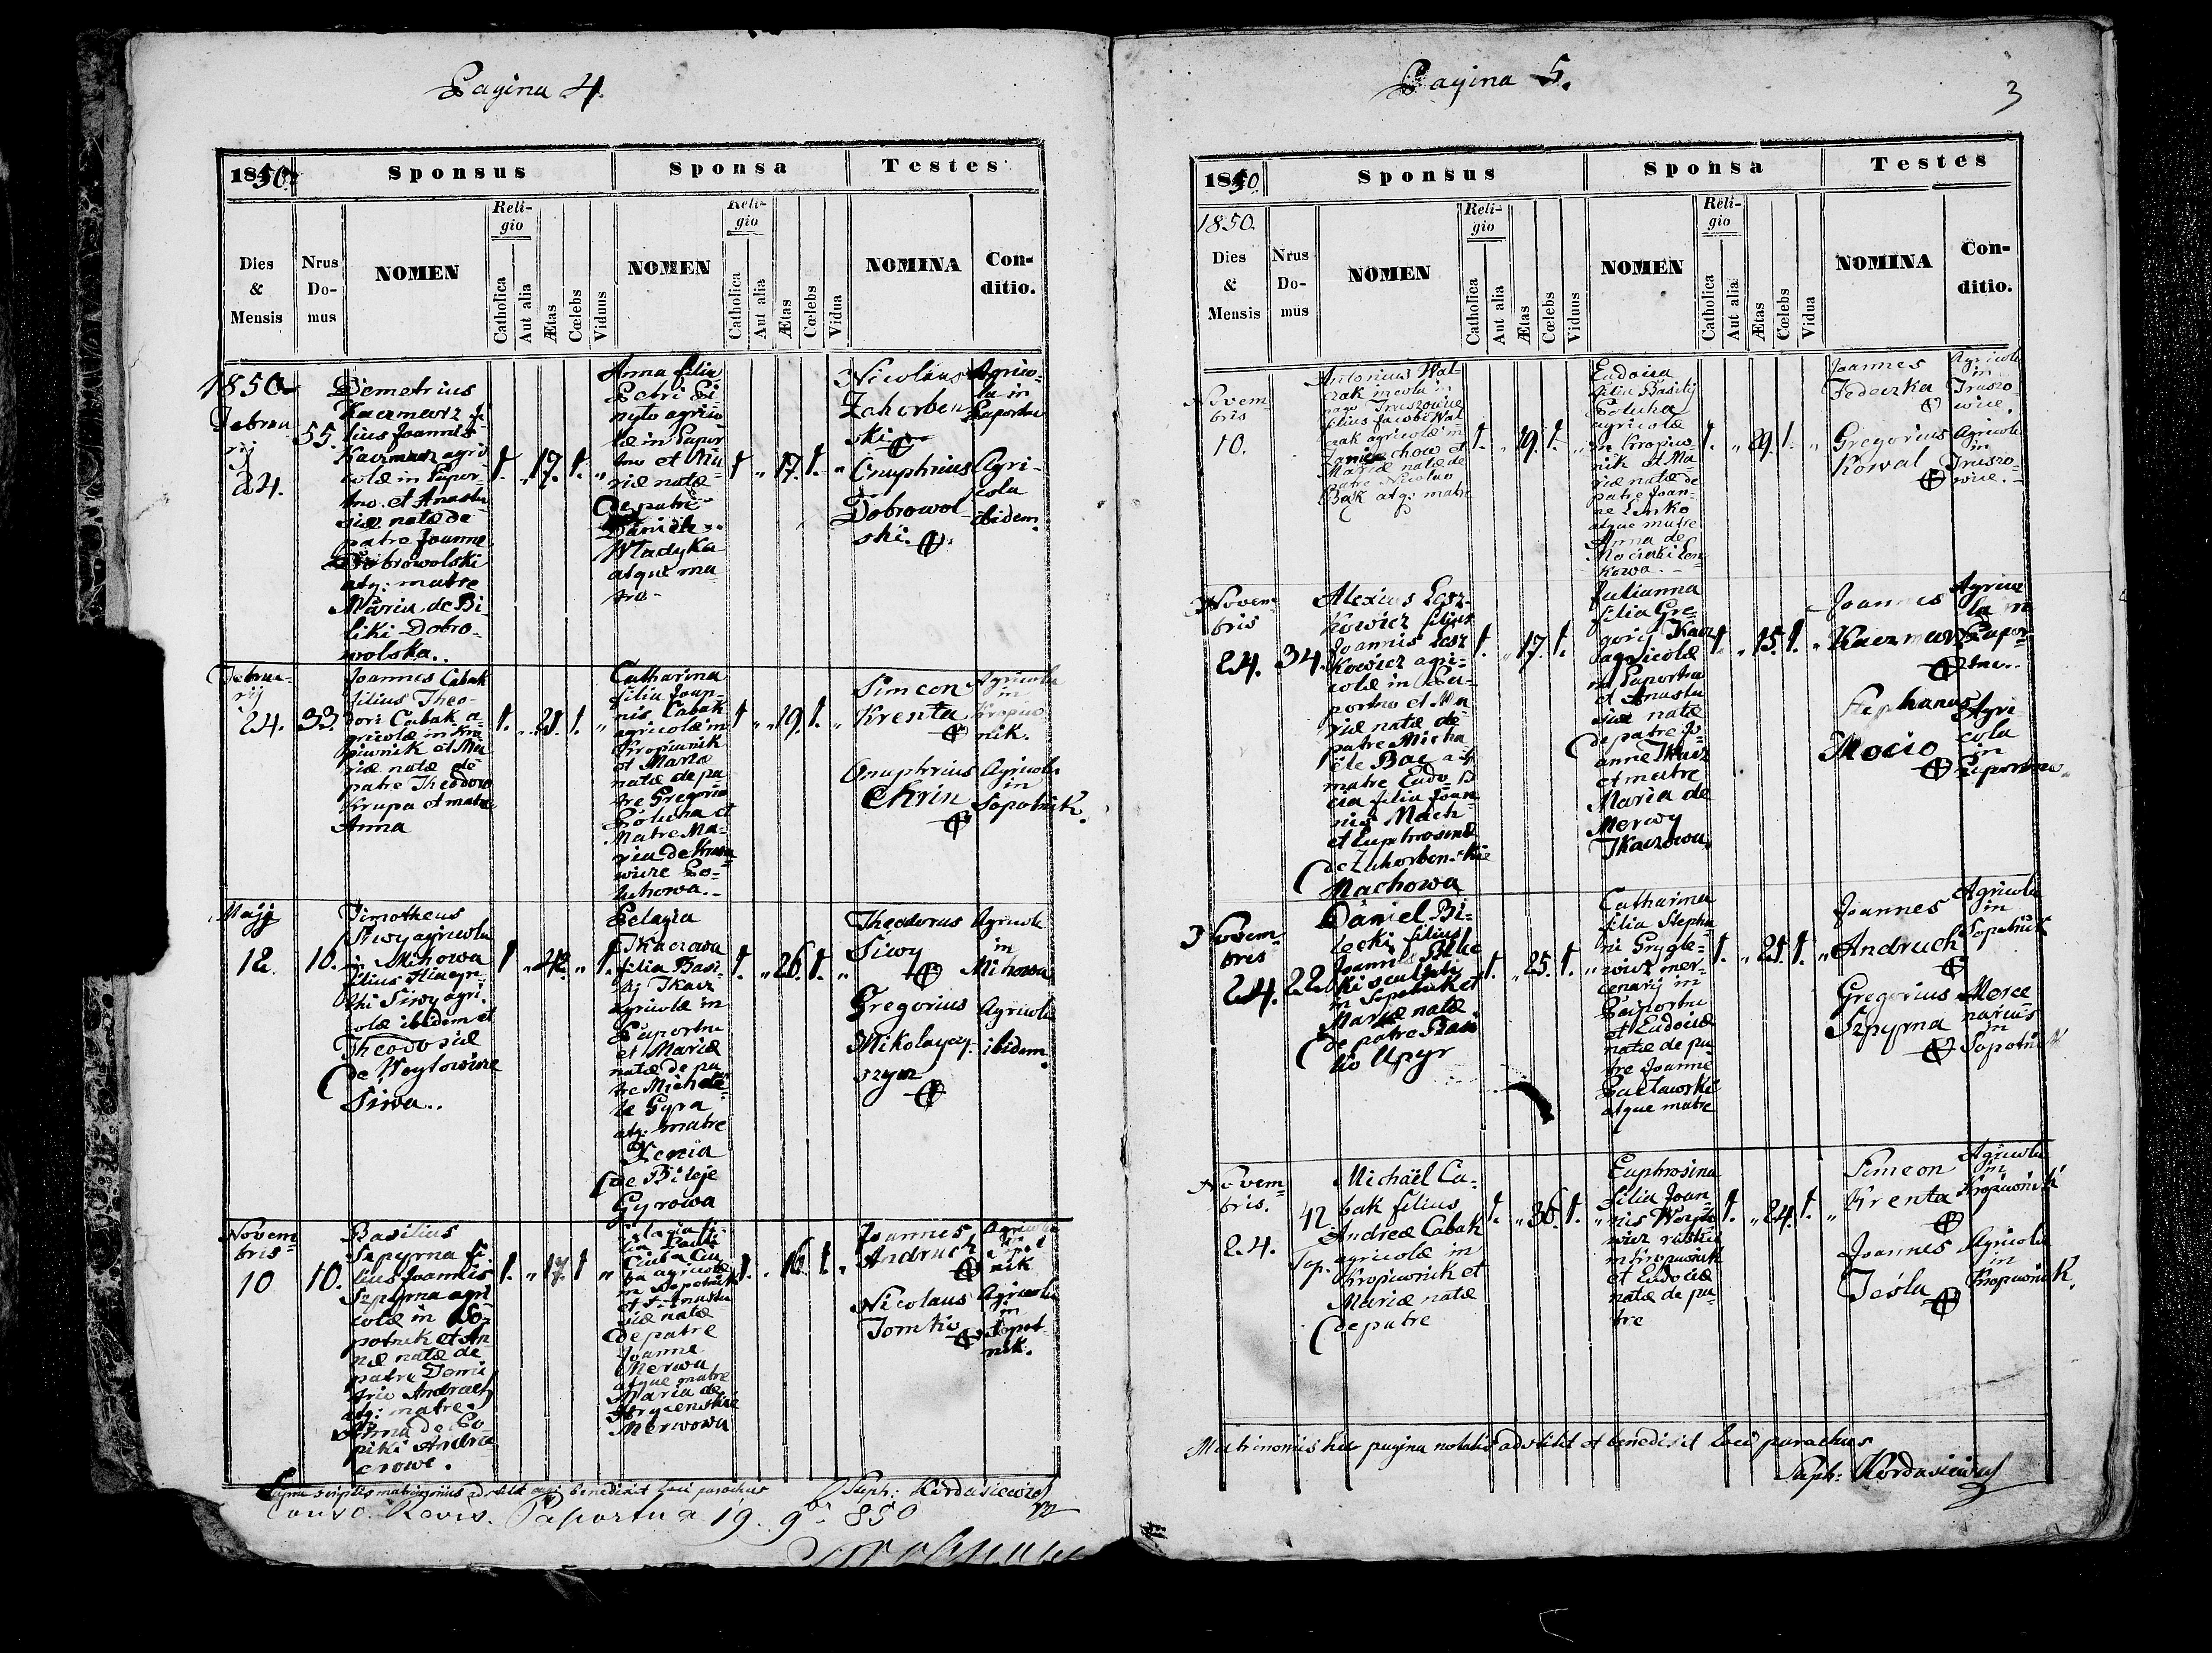 Pagina 4.
1850.
Sponsus
Sponsa
Testes
Dies
&
Mensis
Nrus
Do-
mus
NOMEN
Reli-
gio
Catholica
Aut alia
Ætas
Cœlebs
Viduus
NOMEN
Reli-
gio
Catholica
Aut alia
Ætas
Cœlebs
Vidua
NOMINA
Con-
ditio.
1850
Februa
rij
24.
55.
Demetrius
Kaczmarz fi-
lius Joannis
Kaczmarz agri
colæ in Papor-
tno et Anasta
siæ natæ de
patre Joanne
Dobrowolski
atq: matre
Maria de Bi-
liki Dobro-
wolska..
1. „ 17. 1. „
Anna filia
Petri
agrico
læ in Papor
tno et Ma
riæ natæ
de patre
Daniele
Wladyka
atque ma
tre -
1 „ 17. 1. „
Nicolaus
Zahorben
ski
Onuphrius
Dobrowol
ski.
Agrico-
la in
Paportno
Agri-
cola
ibidem.
Februa-
rij
24.
33.
Joannes Cabak
filius Theo-
dori Cabak a-
gricolæ in Kro
piwnik et Ma
riæ natæ de
patre Theodoro
Krupa et matre
Anna
1. „ 21. 1. „
Catharina
filia Joan-
nis Cabak
agricolæ in
Kropiwnik
et Mariæ
natæ de pa
tre Gregorio
Poluha et
Matre Ma-
ria de
Po-
luhowa. -
1 „ 19. 1. „
Simeon
Krenta
Onuphrius
Chrin
Agricola
in
Kropiw
nik.
Agricola
in
Sopotnik.
Majj
12.
10.
Timotheus
Siwy agricola
in Mihowa
filius Hiacyn
thi Siwy agri.
colæ ibidem et
Theodosiæ
de Woytowicze
Siwa..
1 „ 42. „ 1.
Pelagia
Tkaczowa
filia Basi-
lij Tkacz
agricolæ in
Paportno
et Mariæ
natæ de pa
tre Michaë
le Gyra
atq: matre
Xenia
de Bileje
Gyrowa
1. „ 26. 1. „
Theodorus
Siwy
Gregorius
Mikolayczy-
szyn
Agricola
in
Mihowa
Agricola
ibidem.
Novem
bris
10
10.
Basilius
Szpyrna fi-
lius Joannis
Szpyrna agri
colæ in So-
potnik et An
næ natæ de
patre Deme
trio Andruch
atq: matre
Anna de Po
piki Andru
chowe.
1. „ 17. 1 „
Pelagia fi-
lia Pauli
Ciuba
agricolæ
in Sopotnik
et Anasta
siæ natæ
de patre
Joanne
Merwa
atque matre
Maria de
Merwowa
1. „ 16. 1. „
Joannes
Andruch
Nicolaus
Tomkiw
Agricola
in Sopot
nik
Agricola
in
Sopot-
nik.
scriptis matrimoniis adstitit atq: benedixit loci parochus Steph: Kordasiewicz
Revis. Paportno 19. 9br 850
Pagina 5.
3
1850.
Sponsus
Sponsa
Testes
1850.
Dies
&
Mensis
Nrus
Do-
mus
NOMEN
Reli-
gio
Catholica
Aut alia
Ætas
Cœlebs
Viduus
NOMEN
Reli-
gio
Catholica
Aut alia
Ætas
Cœlebs
Vidua
NOMINA
Con-
ditio.
Novem
bris
10.
Antonius Wal-
czak incola in
pago Truszowice
filius Jacobi Wal
czak agricolæ in
et
Mariæ natæ de
patre Nicolao
Bąk atq: matre
1. „ 19. 1. „
Eudocia
filia Basilij
Poluha
agricolæ
in Kropiw
nik et Ma-
riæ natæ de
patre Joan-
ne Lenko
atque matre
Anna de
Len
kowa. -
1. „ 29. 1. „
Joannes
Fedeczka
Gregorius
Kowal
Agricola
in
Truszo
wice.
Agricola
in
Truszo-
wice. -
Novem
bris
24.
34.
Alexius Lesz-
kowicz filius
Joannis Lesz
kowicz agri-
colæ in Pa-
portno et Ma
riæ natæ de
patre Micha
ële Bac atq
matre Eudo
cia filia Joan
nis Mach
et Euphrosinæ
de Zahorbenskie
Machowa
1. „ 17. 1.
Julianna
filia Gre-
gorij Tkacz
agricolæ
in Paportno
et Anasta
siæ natæ
de patre Jo-
anne Tkacz
et matre
Maria de
Merwy
Tkaczowa.
1. „ 15. 1. „
Joannes
Kaczmarz
Stephanus
Mocio
Agrico
la in
Papor-
tno..
Agri-
cola
in
Paportno.
Novem
bris
24.
22
Daniel Bi-
lecki filius
Joannis Bile
cki sculteti
in Sopotnik et
Mariæ natæ
de patre Basi
lio Upyr
1. „ 25. 1. „
Catharina
filia Stepha
ni Grygle-
wicz mer-
cenarij in
Paportno
et Eudociæ
natæ de pa
tre Joanne
Pacławski
atque matre
1. „ 21. 1. „
Joannes
Andruch
Gregorius
Szpyrna
Agricola
in
Sopotnik
Merce
narius
in
Sopotnik
Novem
bris.
24.
42
Top.
Michaël Ca-
bak filius
Andreæ Cabak
agricolæ in
Kropiwnik et
Mariæ natæ
de patre
1. „ 36. 1. „
Euphrosina
filia Joan-
nis Woyto
wicz rustici
in Kropiwnik
et Eudociæ
natæ de pa-
tre
1. „ 24. 1. „
Simeon
Krenta
Joannes
Tesla
Agricola
in
Kropiwnik
Agricola
in
Kropiwnik.
Matrimoniis hac pagina notatis adstitit et benedixit loci parochus
Steph: Kordasiewicz